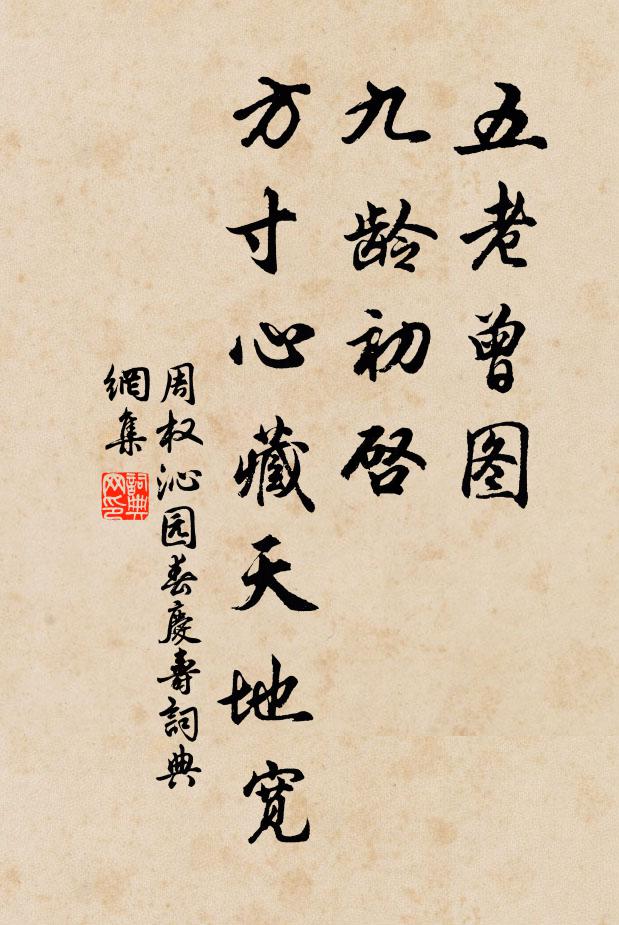 五老曾图
九龄初启
方寸心藏天地宽
周权沁园春慶壽詞典
網集
詞典
网印